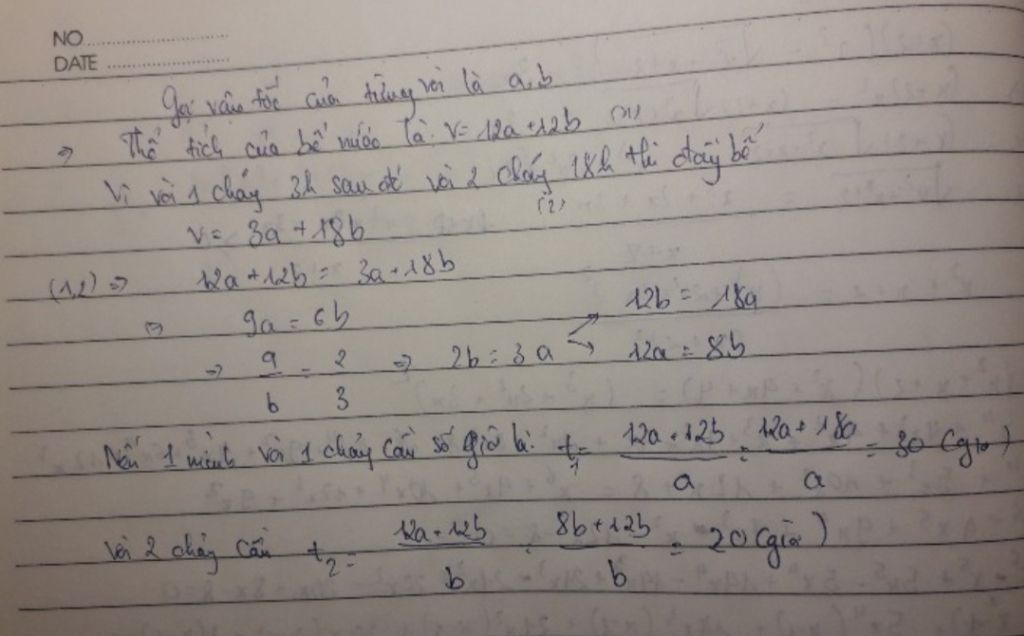 NO
DATE
Gọi vận tốc của từng vòi là a, b
=> Thể tích của bể nước là: V = 12a + 12b (1)
Vì vòi 1 chảy 3h sau đó vòi 2 chảy 18h thì đầy bể
V = 3a + 18b (2)
(1,2) => 12a + 12b = 3a + 18b
<=> 9a = 6b
=> a/b = 2/3 => 2b = 3a → 12b = 18a
→ 12a = 8b
Nếu 1 mình vòi 1 chảy cần số giờ là: t₁ = (12a + 12b)/a = (12a + 18a)/a = 30 (giờ)
Vòi 2 chảy cần t₂ = (12a + 12b)/b = (8b + 12b)/b = 20 (giờ)